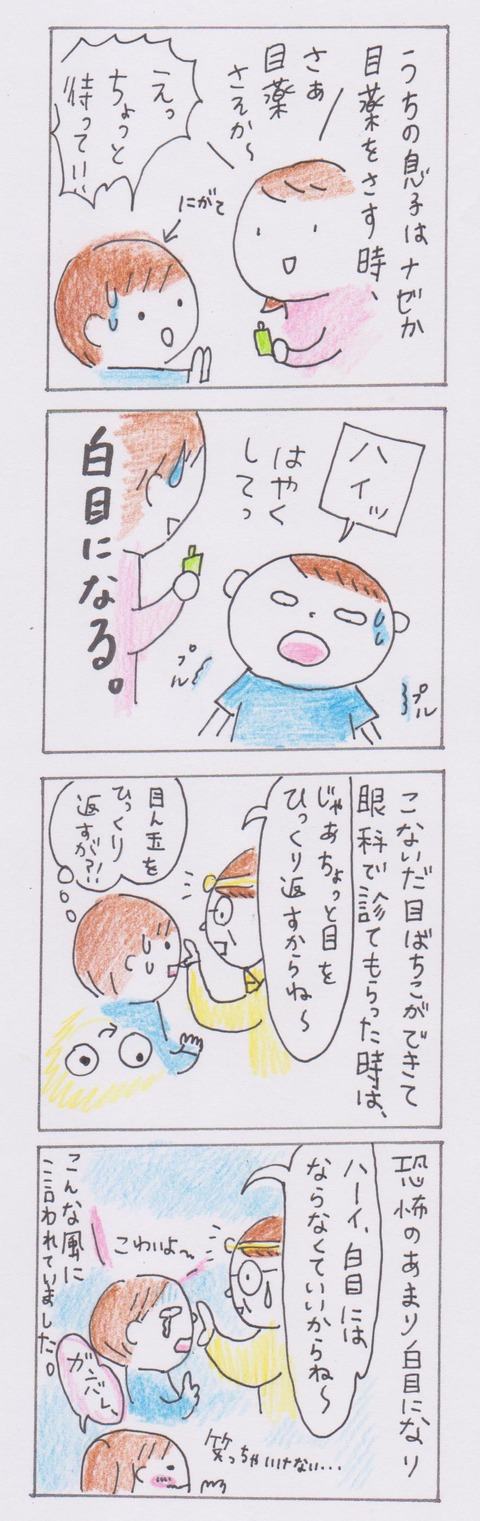 うちの息子はナゼか
目薬をさす時、
さぁ
目薬
さそか〜
えっ
ちょっと
待ってい!!
にがて
ハイッ
はやく
してっ
プル
プル
白目になる。
こないだ目ばちこができて
眼科で診てもらった時は、
じゃあちょっと目を
ひっくり返すからね〜
目ん玉を
ひっくり
返すが?!!
恐怖のあまり白目になり
ハーイ、白目には
ならなくていいからね〜
こわいよ〜
こんな風に
言われていました。
ガンバレ、
笑っちゃいけない...